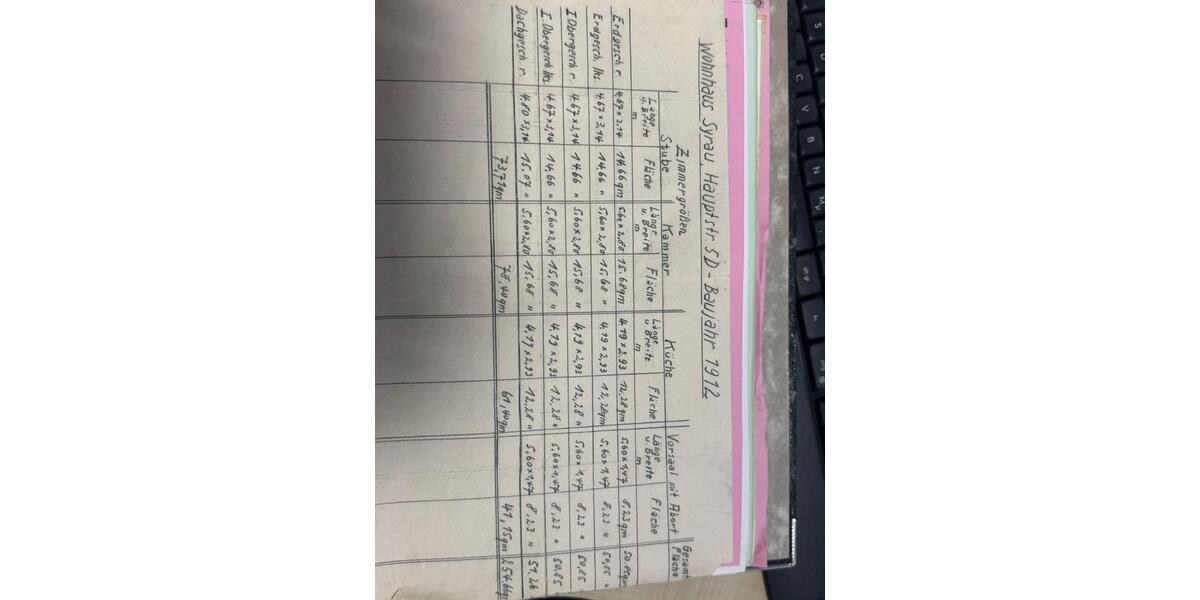 Wohnhaus Syrau, Hauptstr 5D - Baujahr 1912
Zimmergrößen
Stube Kammer Küche Vorsaal mit Abort Gesamt-
Länge Fläche Länge Fläche Länge Fläche Länge Fläche Fläche
u. Breite u. Breite u. Breite u. Breite
m m m m
Erdgesch r. 4,67 x 3,14 14,66 qm 5,60 x 2,80 15,68 qm 4,19 x 2,93 12,28 qm 5,60 x 1,47 8,23 qm 50,85 qm
Erdgesch. lks 4,67 x 3,14 14,66 " 5,60 x 2,80 15,68 " 4,19 x 2,93 12,28 qm 5,60 x 1,47 8,23 " 50,85 "
I Obergesch r. 4,67 x 3,14 14,66 " 5,60 x 2,80 15,68 " 4,19 x 2,93 12,28 " 5,60 x 1,47 8,23 " 50,85 "
I. Obergesch lks 4,67 x 3,14 14,66 " 5,60 x 2,80 15,68 " 4,19 x 2,93 12,28 " 5,60 x 1,47 8,23 " 50,85 "
Dachgesch r. 4,80 x 3,14 15,07 " 5,60 x 2,80 15,68 " 4,19 x 2,93 12,28 " 5,60 x 1,47 8,23 " 51,26
73,71 qm 78,40 qm 61,40 qm 41,15 qm 254,66 qm